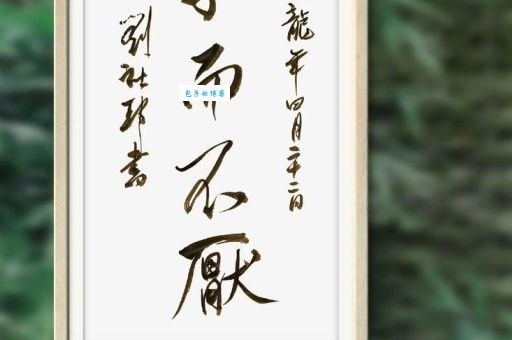 龍年四月二十二日
而不厭
劉社書
包子的博客